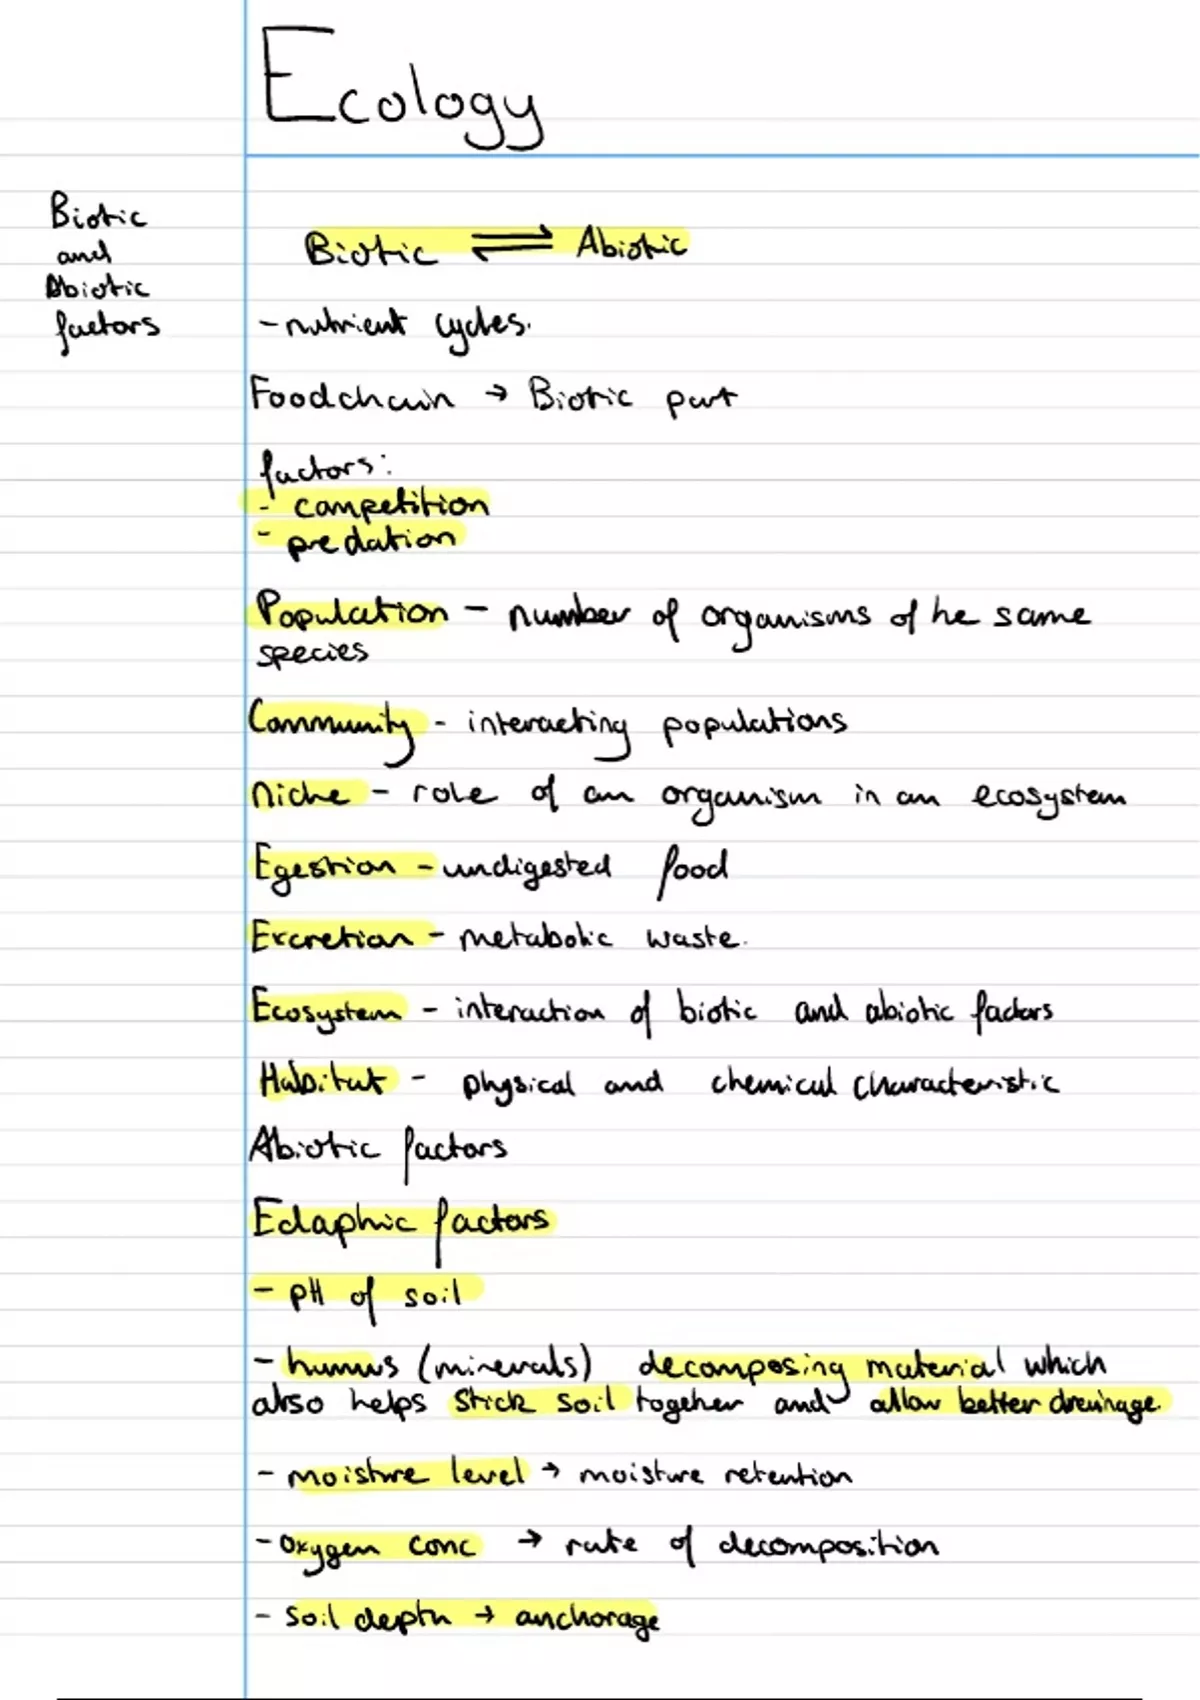 Ecology
Biotic
and
Abiotic
factors
Biotic ⇌ Abiotic
- nutrient cycles.
Foodchain → Biotic part
factors:
- competition
- predation
Population - number of organisms of he same
species
Community - interacting populations
niche - role of an organism in an ecosystem
Egestion - undigested food
Excretion - metabolic waste.
Ecosystem - interaction of biotic and abiotic factors
Habitat - physical and chemical characteristic
Abiotic factors
Edaphic factors
- pH of soil
- humus (minerals) decomposing material which
also helps stick soil together and allow better dreinage.
- moisture level → moisture retention
- oxygen conc → rate of decomposition
- soil depth → anchorage